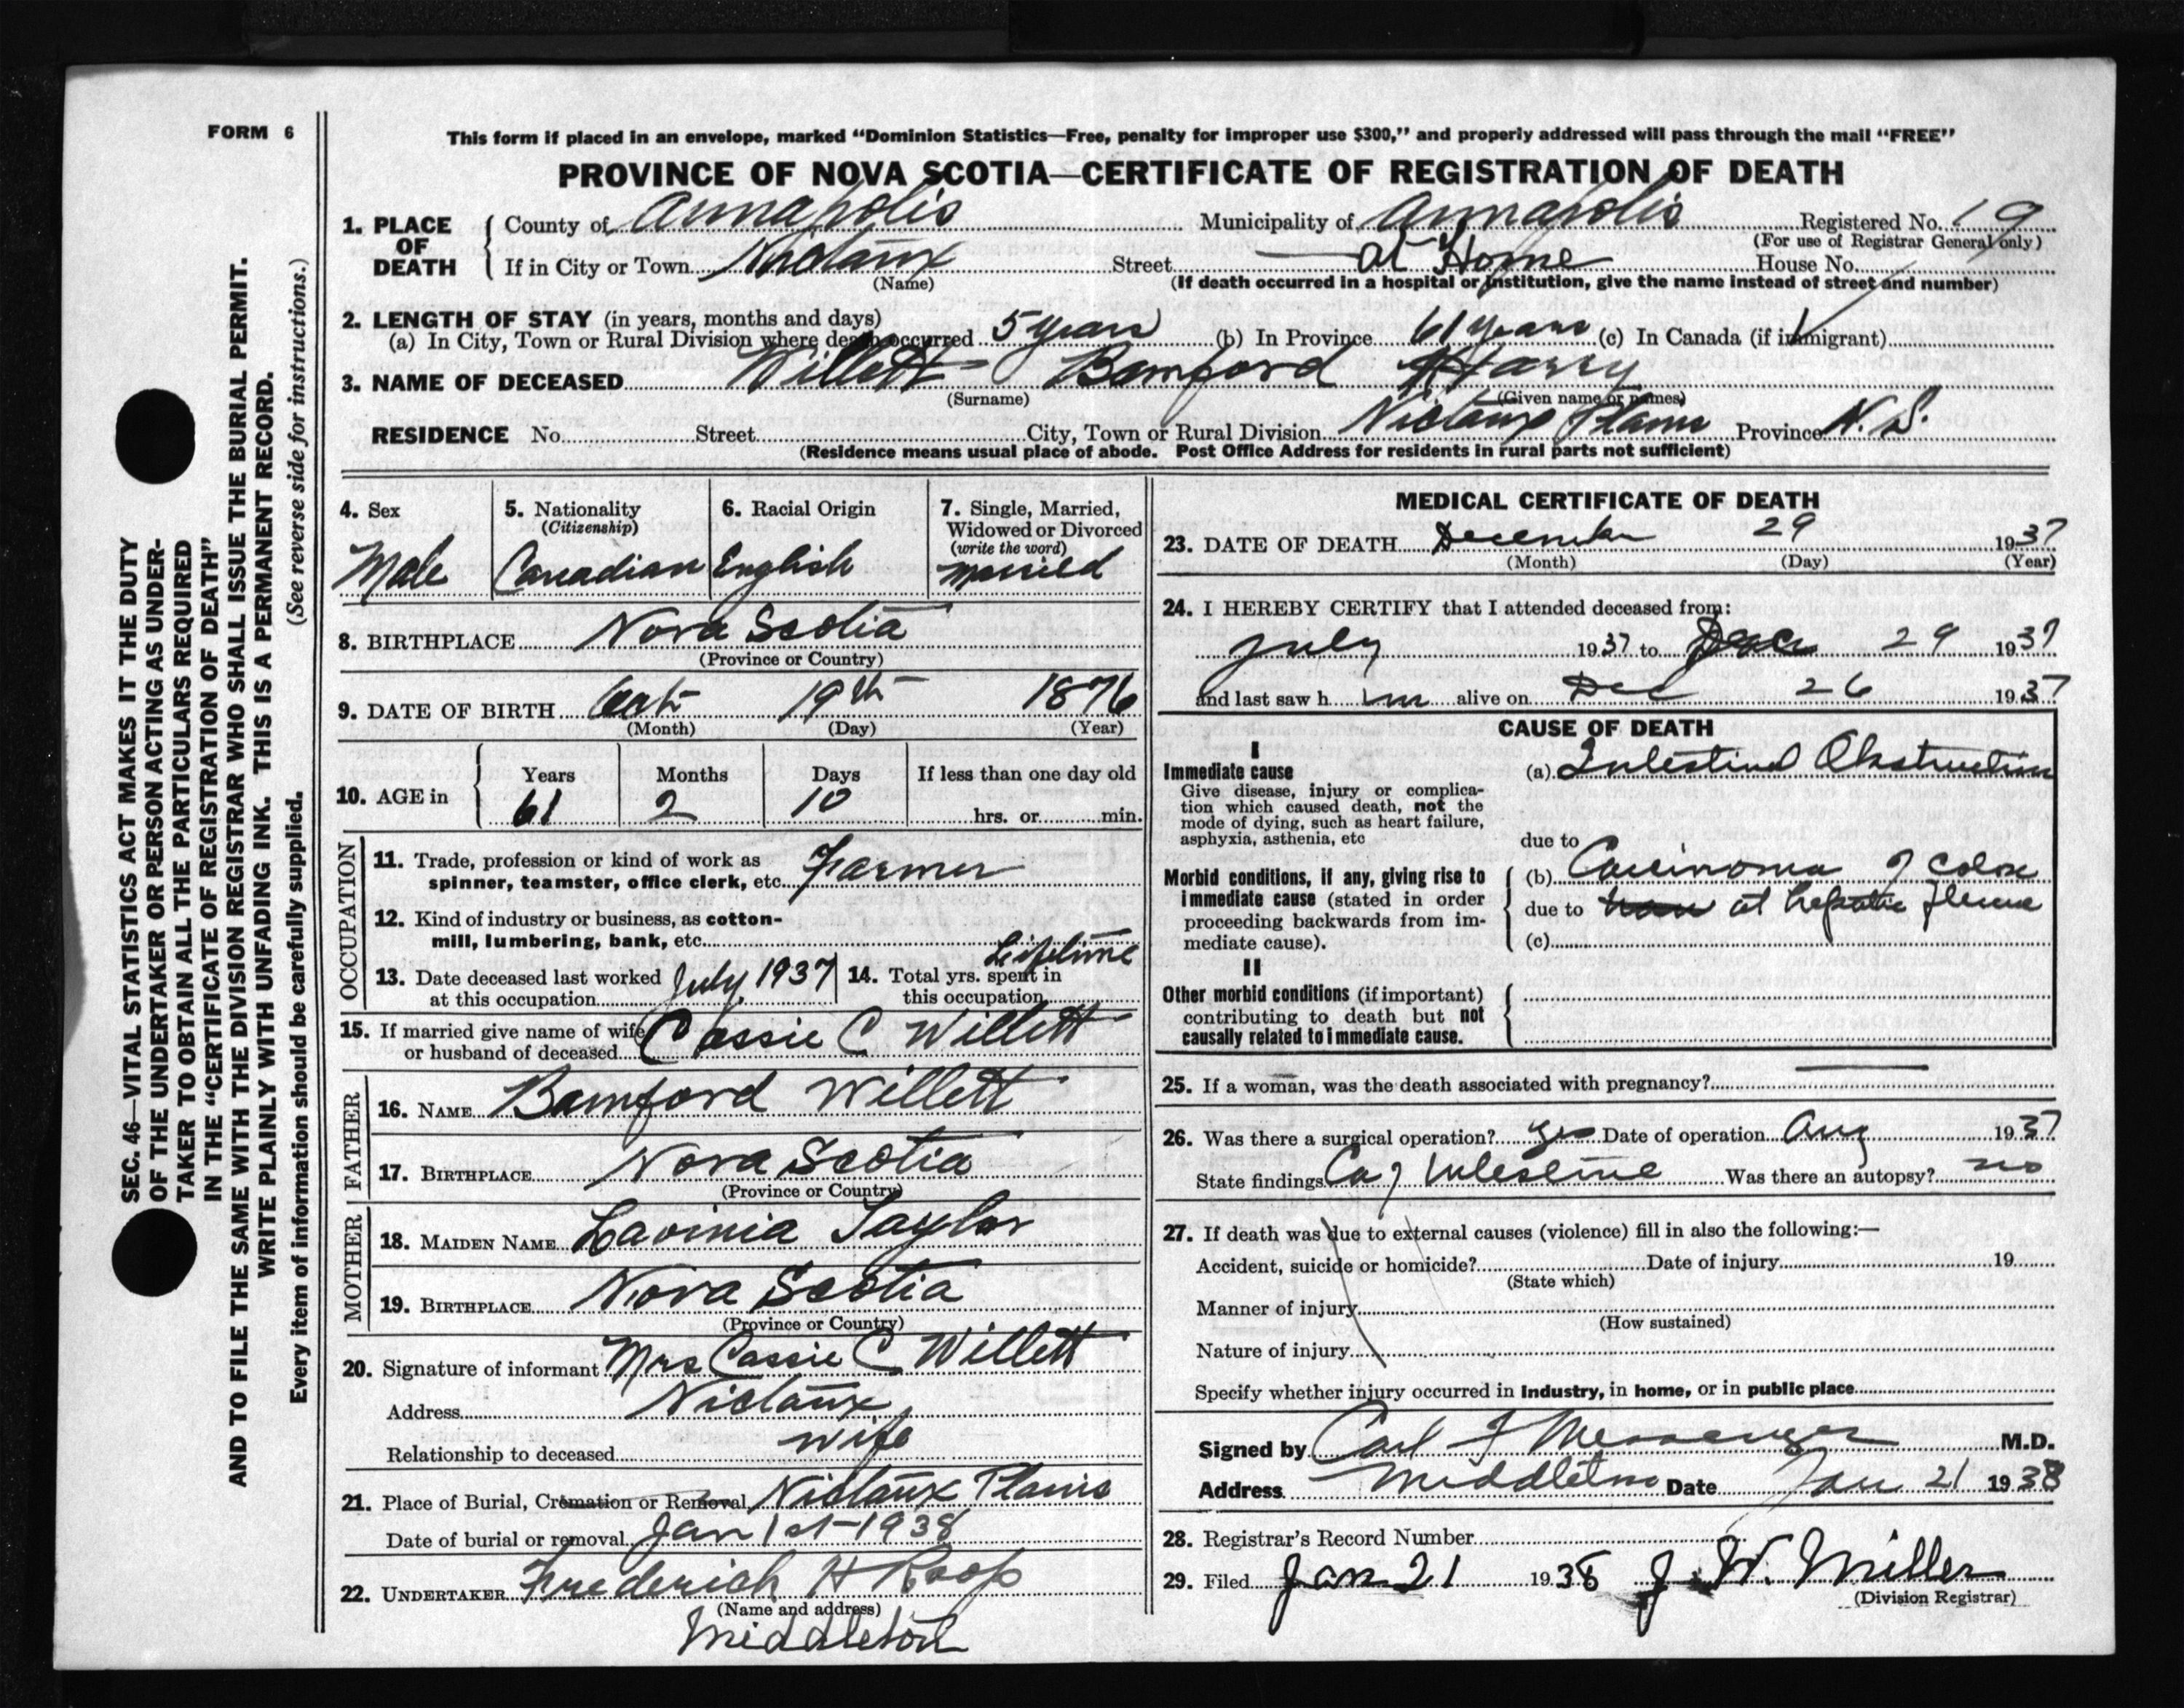 FORM 6
This form if placed in an envelope, marked “Dominion Statistics—Free, penalty for improper use $300,” and properly addressed will pass through the mail “FREE”
PROVINCE OF NOVA SCOTIA—CERTIFICATE OF REGISTRATION OF DEATH
1. PLACE OF DEATH
County of Annapolis Municipality of Annapolis Registered No. 19
(For use of Registrar General only)
If in City or Town Nictaux Street at Home House No.
(Name) (If death occurred in a hospital or institution, give the name instead of street and number)
2. LENGTH OF STAY (in years, months and days)
(a) In City, Town or Rural Division where death occurred 5 years (b) In Province 61 years (c) In Canada (if immigrant)
3. NAME OF DECEASED Willett Bamford Harry
(Surname) (Given name or names)
RESIDENCE No. Street City, Town or Rural Division Nictaux Plains Province N. S.
(Residence means usual place of abode. Post Office Address for residents in rural parts not sufficient)
4. Sex
Male
5. Nationality
(Citizenship)
Canadian
6. Racial Origin
English
7. Single, Married,
Widowed or Divorced
(write the word)
Married
8. BIRTHPLACE Nova Scotia
(Province or Country)
9. DATE OF BIRTH Oct 19th 1876
(Month) (Day) (Year)
10. AGE in
Years Months Days If less than one day old
61 2 10 hrs. or min.
OCCUPATION
11. Trade, profession or kind of work as
spinner, teamster, office clerk, etc. Farmer
12. Kind of industry or business, as cotton-
mill, lumbering, bank, etc.
13. Date deceased last worked
at this occupation July, 1937
14. Total yrs. spent in
this occupation Lifetime
15. If married give name of wife
or husband of deceased Cassie C Willett
FATHER
16. NAME Bamford Willett
17. BIRTHPLACE Nova Scotia
(Province or Country)
MOTHER
18. MAIDEN NAME Lavinia Taylor
19. BIRTHPLACE Nova Scotia
(Province or Country)
20. Signature of informant Mrs Cassie C Willett
Address Nictaux
Relationship to deceased wife
21. Place of Burial, Cremation or Removal Nictaux Plains
Date of burial or removal Jan 1st-1938
22. UNDERTAKER Frederick H Roop
(Name and address)
Middleton
MEDICAL CERTIFICATE OF DEATH
23. DATE OF DEATH December 29 1937
(Month) (Day) (Year)
24. I HEREBY CERTIFY that I attended deceased from:
July 1937 to Dec 29 1937
and last saw him alive on Dec 26 1937
CAUSE OF DEATH
I
Immediate cause
Give disease, injury or complica-
tion which caused death, not the
mode of dying, such as heart failure,
asphyxia, asthenia, etc
(a) Intestinal Obstruction
due to
Morbid conditions, if any, giving rise to
immediate cause (stated in order
proceeding backwards from im-
mediate cause).
(b) Carcinoma of Colon
due to at hepatic flexure
(c)
II
Other morbid conditions (if important)
contributing to death but not
causally related to immediate cause.
25. If a woman, was the death associated with pregnancy?
26. Was there a surgical operation? yes Date of operation Aug 1937
State findings Ca of Intestine Was there an autopsy? no
27. If death was due to external causes (violence) fill in also the following:—
Accident, suicide or homicide? Date of injury 19
(State which)
Manner of injury
(How sustained)
Nature of injury
Specify whether injury occurred in Industry, in home, or in public place
Signed by Carl F Messenger M.D.
Address Middleton Date Jan 21 1938
28. Registrar's Record Number
29. Filed Jan 21 1938 J. W. Miller
(Division Registrar)
SEC. 46—VITAL STATISTICS ACT MAKES IT THE DUTY
OF THE UNDERTAKER OR PERSON ACTING AS UNDER-
TAKER TO OBTAIN ALL THE PARTICULARS REQUIRED
IN THE “CERTIFICATE OF REGISTRATION OF DEATH”
AND TO FILE THE SAME WITH THE DIVISION REGISTRAR WHO SHALL ISSUE THE BURIAL PERMIT.
WRITE PLAINLY WITH UNFADING INK. THIS IS A PERMANENT RECORD.
Every item of information should be carefully supplied. (See reverse side for instructions.)